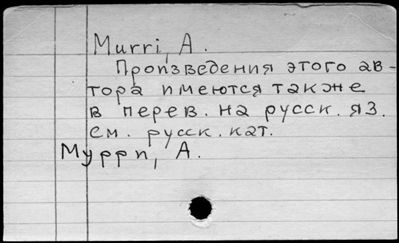 Murri, A.
Произведения этого ав-
тора имеются также
в перев. на русск. яз.
см. русск. кат.
Мурри, А.